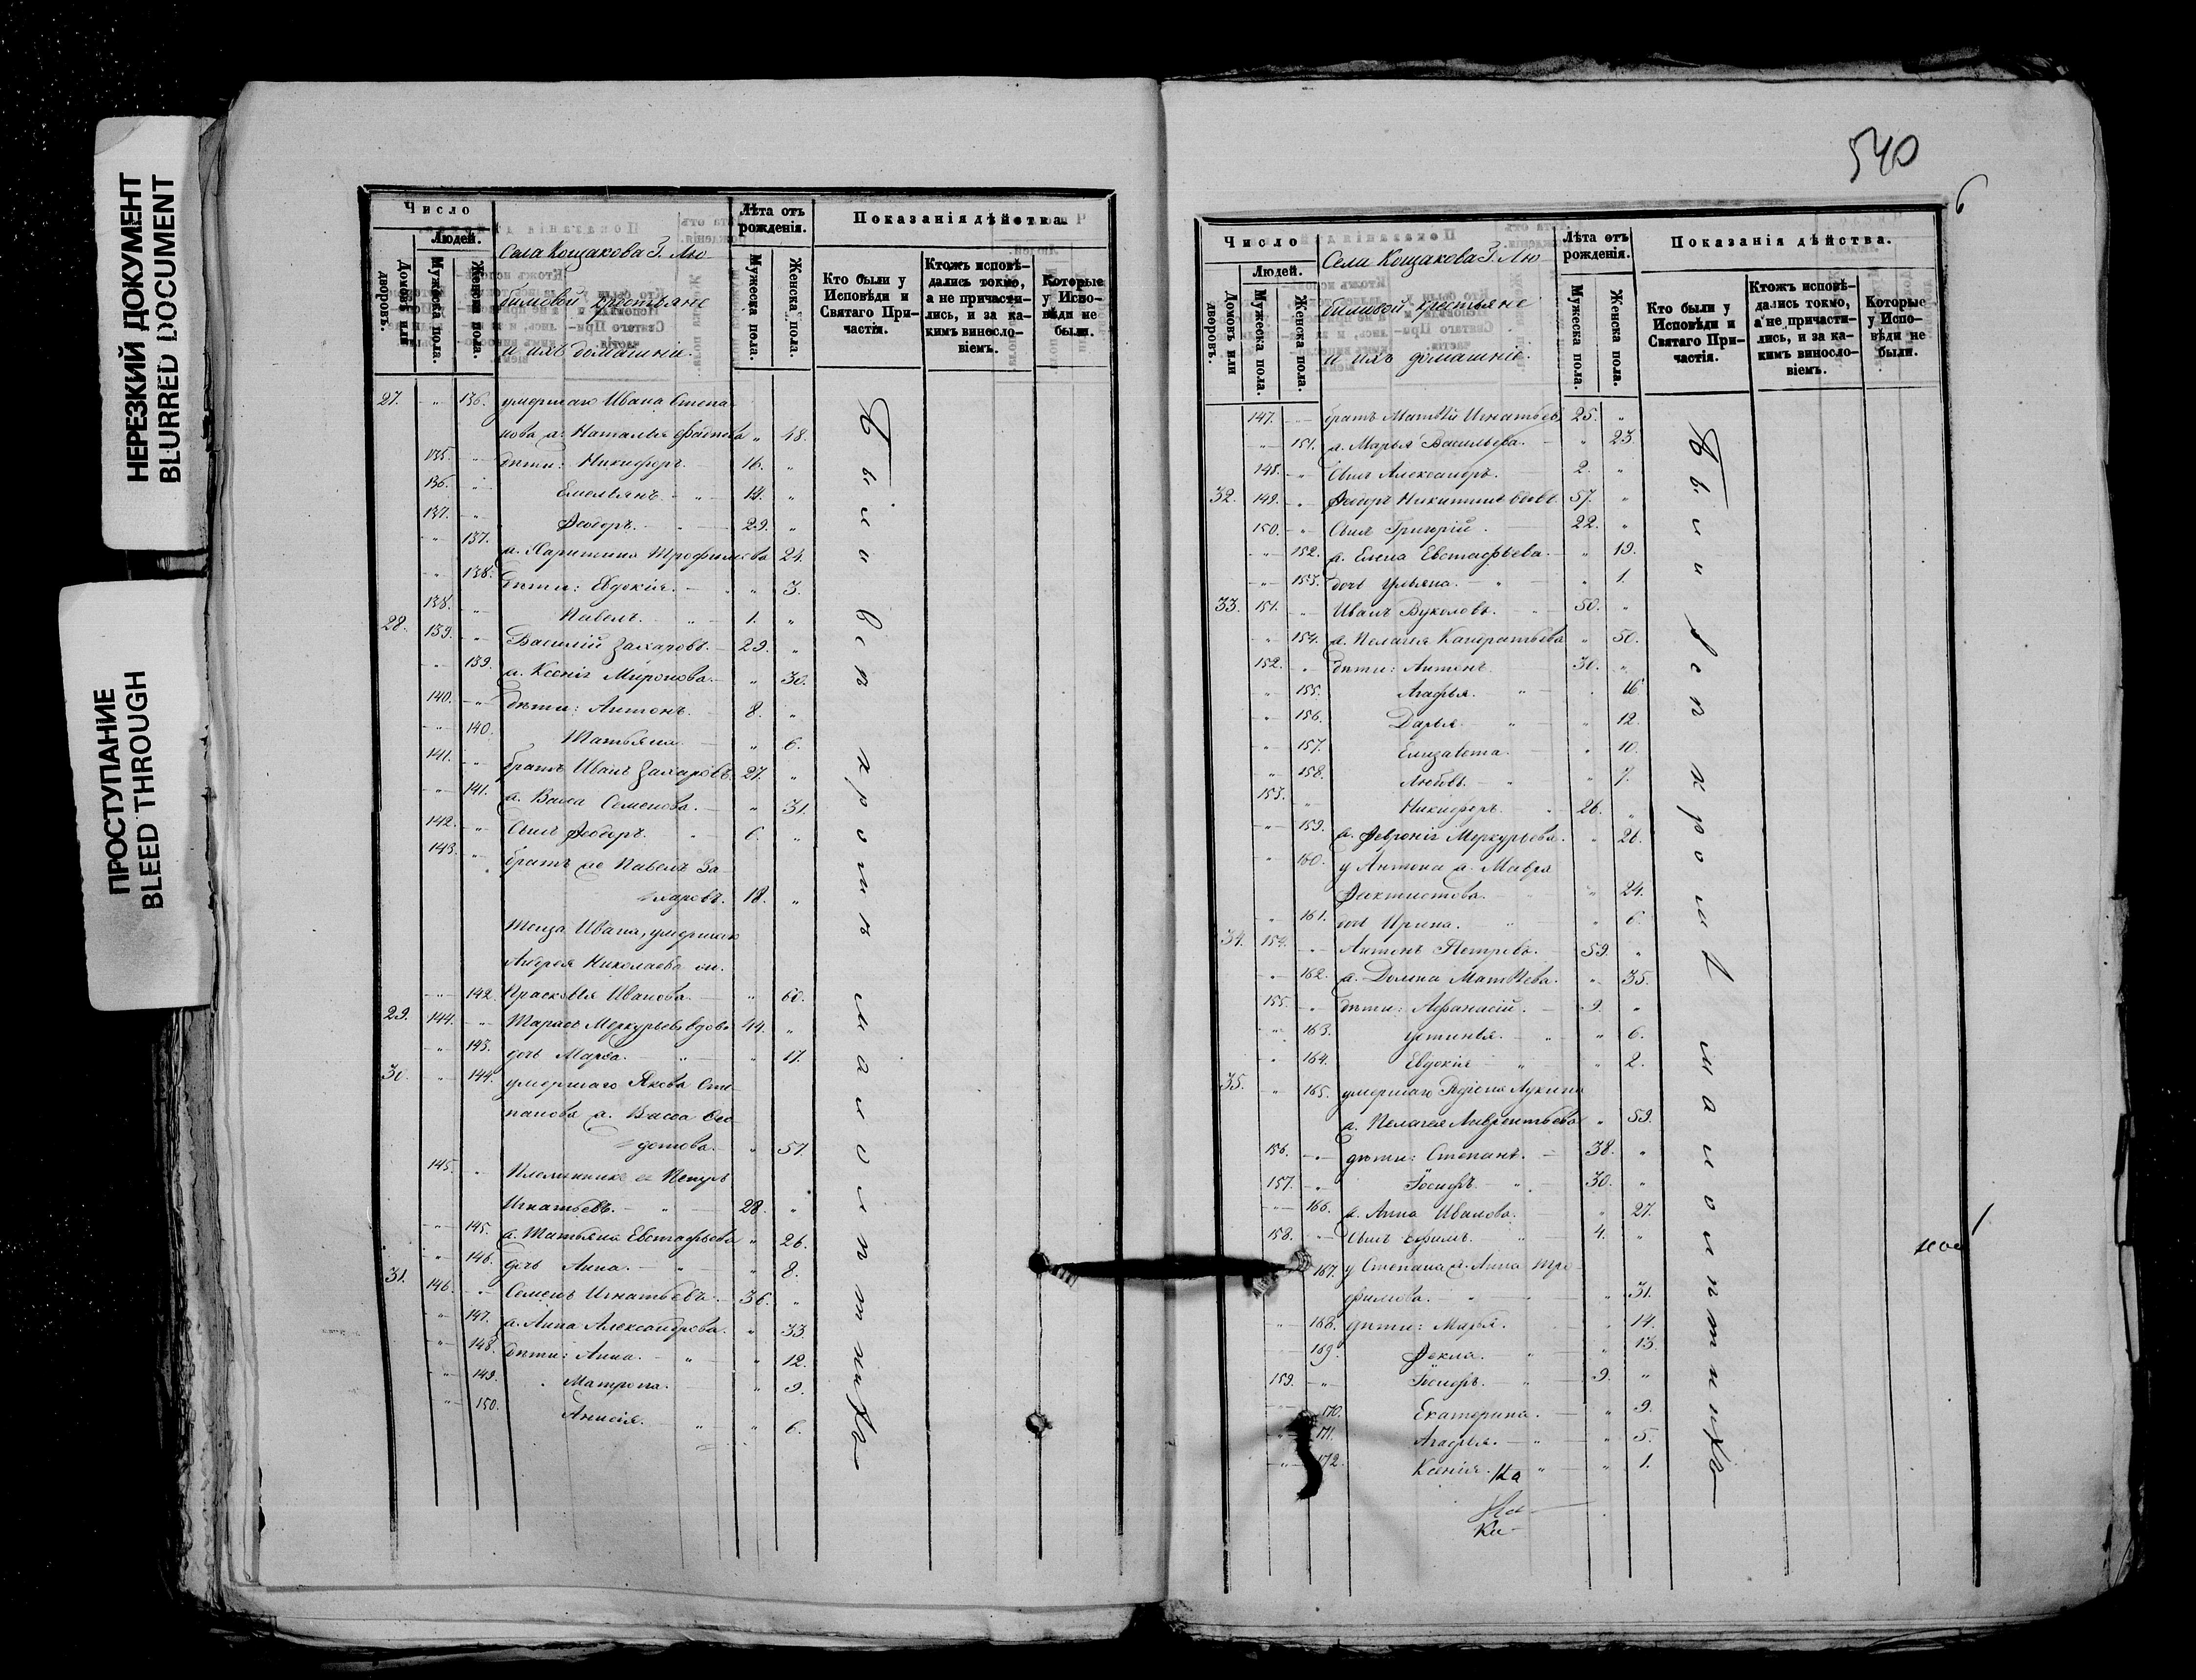 НЕРЕЗКИЙ ДОКУМЕНТ
BLURRED DOCUMENT
ПРОСТУПАНИЕ
BLEED THROUGH
Число
Людей.
Домовъ или дворовъ.
Мужеска пола.
Женска пола.
Села Кощакова Г. Лю
бимовой крестьяне
и ихъ домашніи.
Лѣта отъ рожденія.
Мужеска пола.
Женска пола.
Показанія дѣйства.
Кто были у Исповѣди и Святаго При-частія.
Ктожъ исповѣ-дались токмо, а не причасти-лись, и за ка-кимъ винословіемъ.
Которые у Испо-вѣди не были.
27. " 136. умершаго Ивана Степа
нова ж: Наталья Фадѣева " 48.
135. " дѣти: Никифоръ. 16. "
136. " Емельянъ. 14. "
137. " Ѳеодоръ. 29. "
" 137. ж. Харитина Трофимова 24.
" 138. дѣти: Евдокія. " 3.
138. " Павелъ. 1. "
28. 139. " Василій Захаровъ. 29. "
" 139. ж. Ксенія Миронова. " 30.
140. " дѣти: Антонъ. 8. "
" 140. Татьяна. " 6.
141. " братъ Иванъ Захаровъ. 27. "
" 141. ж. Васса Семенова. " 31.
142. " сынъ Ѳеодоръ. 6. "
143. " братъ же Павелъ За
харовъ. 18. "
теща Ивана, умершаго
Андрея Николаева ж.
" 142. Прасковья Иванова. " 60.
29. 144. " Тарасъ Меркурьевъ вдовъ 44. "
" 143. дочь Марѳа. " 17.
30. " 144. умершаго Якова Сте
панова ж. Васса Ѳео
дотова. " 57.
145. " Племянникъ ея Петръ
Игнатьевъ. 28. "
" 145. ж. Татьяна Евстафьева " 26.
" 146. дочь Анна. " 8.
31. 146. " Семенъ Игнатьевъ. 36. "
" 147. ж. Анна Александрова. " 33.
" 148. дѣти: Анна. " 12.
" 149. Матрона. " 9.
" 150. Анисія. " 6.
Были всѣ кромѣ малолѣтнихъ
540
6
Число
Людей.
Домовъ или дворовъ.
Мужеска пола.
Женска пола.
Села Кощакова Г. Лю
бимовой крестьяне
и ихъ домашніе.
Лѣта отъ рожденія.
Мужеска пола.
Женска пола.
Показанія дѣйства.
Кто были у Исповѣди и Святаго При-частія.
Ктожъ исповѣ-дались токмо, а не причасти-лись, и за ка-кимъ винословіемъ.
Которые у Испо-вѣди не были.
147. " братъ Матвѣй Игнатьевъ 25. "
" 151. ж. Марья Васильева. " 23.
148. " сынъ Александръ. 2. "
32. 149. " Ѳеодоръ Никитинъ вдовъ 57. "
150. " сынъ Григорій. 22. "
" 152. ж. Елена Евстафьева. " 19.
" 153. дочь Ульяна. " 1.
33. 151. " Иванъ Вуколовъ. 50. "
" 154. ж. Пелагея Кандратьева " 50.
152. " дѣти: Антонъ. 30. "
" 155. Агафья. " 16
" 156. Дарья. " 12.
" 157. Елизавета. " 10.
" 158. Любовь. " 7.
153. " Никифоръ. 26. "
" 159. ж. Ѳевронія Меркурьева. " 26.
" 160. у Антона ж. Мавра
Ѳектистова. " 24.
" 161. дочь Ирина. " 6.
34. 154. " Антонъ Петровъ. 59. "
" 162. ж. Домна Матвѣева. " 35.
155. " дѣти: Афанасій. 9. "
" 163. Устинья. " 6.
" 164. Евдокія " 2.
35. " 165. умершаго Родіона Лукина
ж. Пелагея Лаврентьева " 59.
156. " дѣти: Степанъ. 38. "
157. " Іосифъ. 30. "
" 166. ж. Анна Иванова. " 27.
158. " сынъ Ефимъ. 4. "
167. у Степана ж. Анна Тро
фимова. " 31.
" 168. дѣти: Марья. " 14.
169. Ѳекла. " 13.
159. " Іосифъ. 9. "
170. Екатерина. " 9.
" 171. Агафья. " 5.
" 172. Ксенія. " 1.
Были всѣ кромѣ малолѣтнихъ